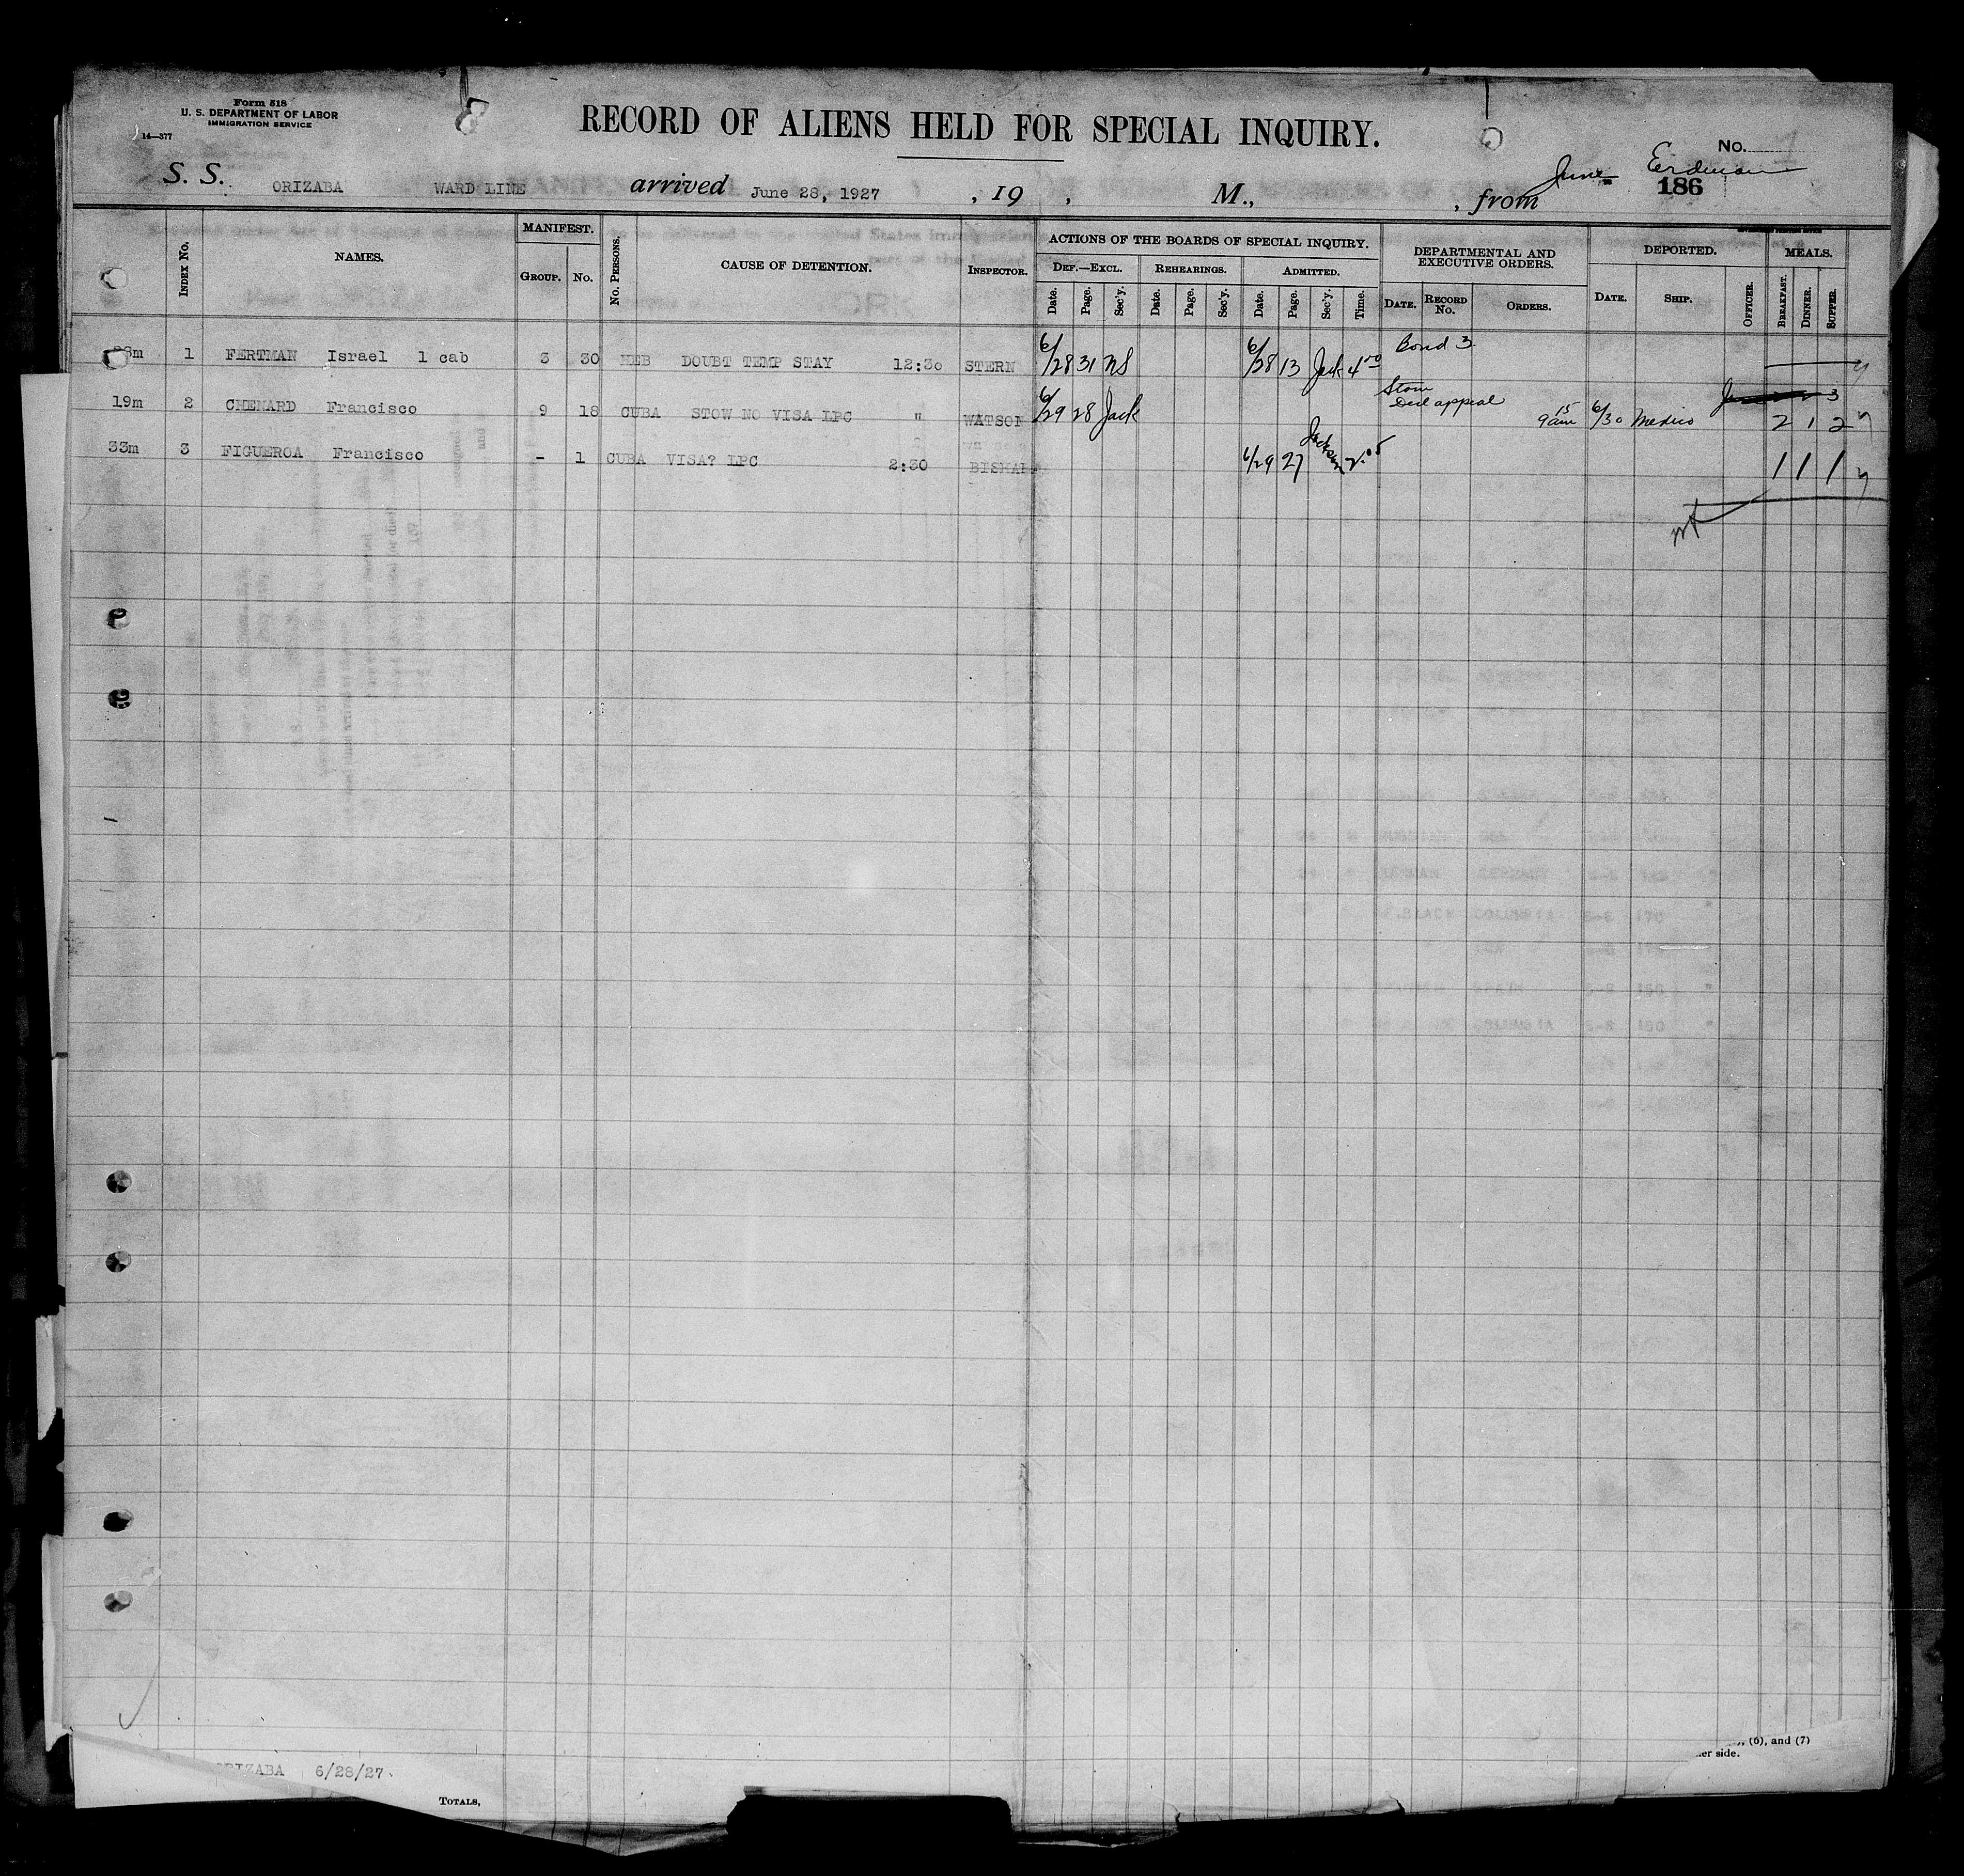 Form 518
U. S. DEPARTMENT OF LABOR
IMMIGRATION SERVICE
14—377
RECORD OF ALIENS HELD FOR SPECIAL INQUIRY.
No.
S. S. ORIZABA WARD LINE arrived June 28, 1927, 19 , M., , from 186
INDEX NO. NAMES. MANIFEST. GROUP. NO. NO. PERSONS. CAUSE OF DETENTION. INSPECTOR.
ACTIONS OF THE BOARDS OF SPECIAL INQUIRY.
DEF.—EXCL. Date. Page. Sec'y. REHEARINGS. Date. Page. Sec'y. ADMITTED. Date. Page. Sec'y. Time.
DEPARTMENTAL AND EXECUTIVE ORDERS. DATE. RECORD NO. ORDERS.
DEPORTED. DATE. SHIP. OFFICER.
MEALS. BREAKFAST. DINNER. SUPPER.
1 FERTMAN Israel 1 cab 3 30 HEB DOUBT TEMP STAY 12:30 STERN 6/28 31 NS 6/28 13 Jack 4 Bond 3
19m 2 CHENARD Francisco 9 18 CUBA STOW NO VISA LPC " WATSON 6/29 28 Jack Stow Decl appeal 9 15 am 6/30 Mexico 2 1 2
33m 3 FIGUEROA Francisco - 1 CUBA VISA? LPC 2:30 6/29 27 Jackson 2:05 1 1 1
ORIZABA 6/28/27
TOTALS,
(6), and (7)
side.